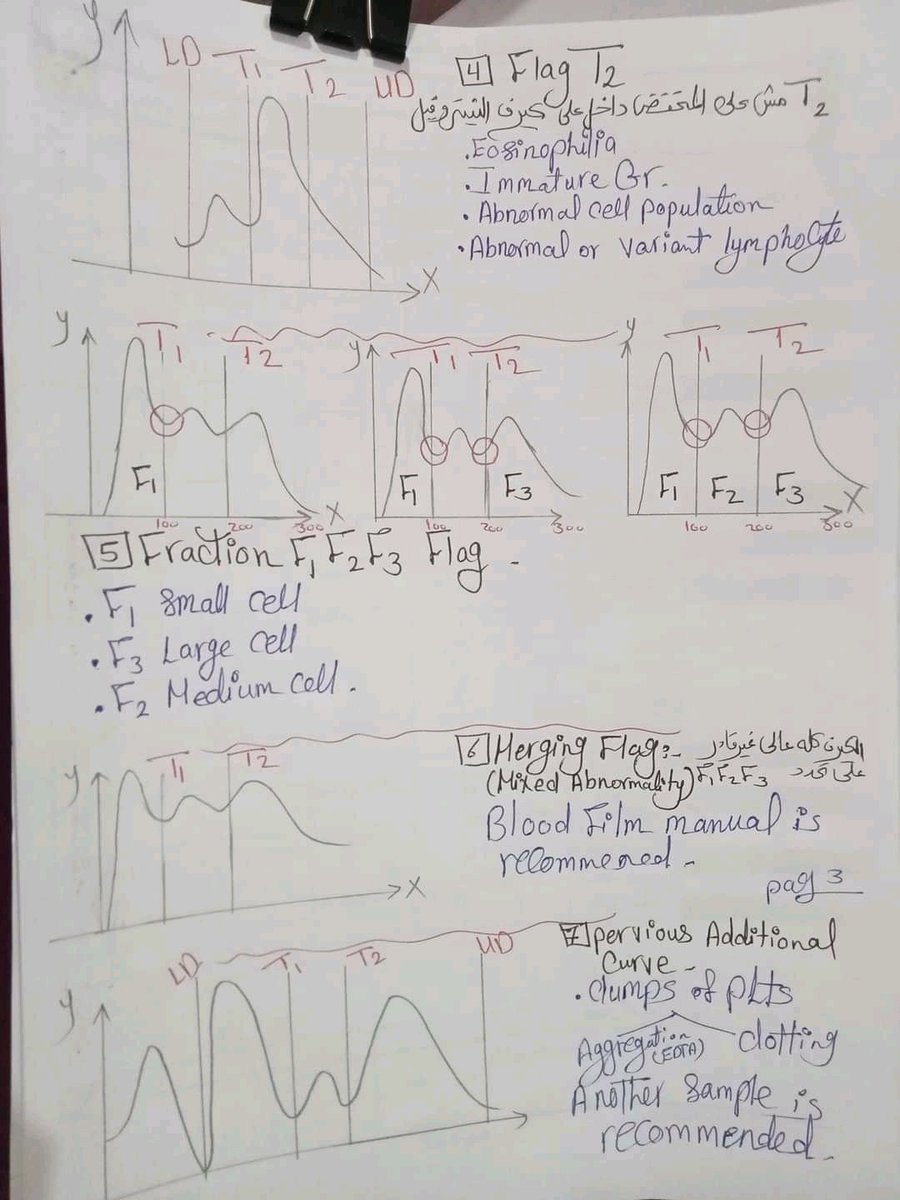 y
LD T1 T2 UD
X
4 Flag T2
T2 مش على المنخفض داخل على كيرف النيتروفيل
. Eosinophilia
. Immature Gr.
. Abnormal cell population
. Abnormal or variant lympholyte
y T1 T2
F1
100 200 300 X
y T1 T2
F1 F3
100 200 300
y T1 T2
F1 F2 F3
100 200 300 X
5 Fraction F1 F2 F3 Flag -
. F1 Small cell
. F3 Large cell
. F2 Medium cell.
y T1 T2
X
6 Merging Flag:- الكيرف كله عالى غير قادر
(Mixed Abnormality) F1 F2 F3 على تحدد
Blood Film manual is
recommened -
pag 3
y
LD T1 T2 UD
7 pervious Additional
Curve -
. clumps of plts
Aggregation (EDTA) clotting
Another sample is
recommended -